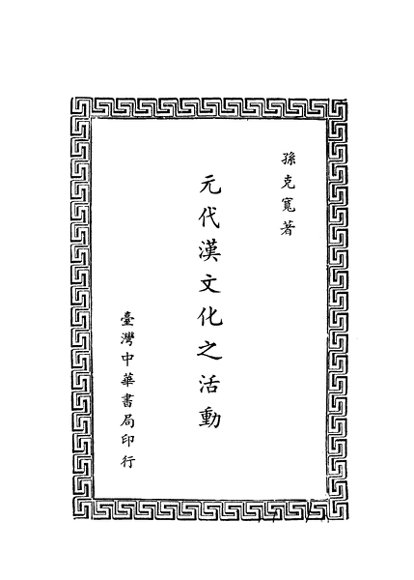 孫克寬著
元代漢文化之活動
臺灣中華書局印行